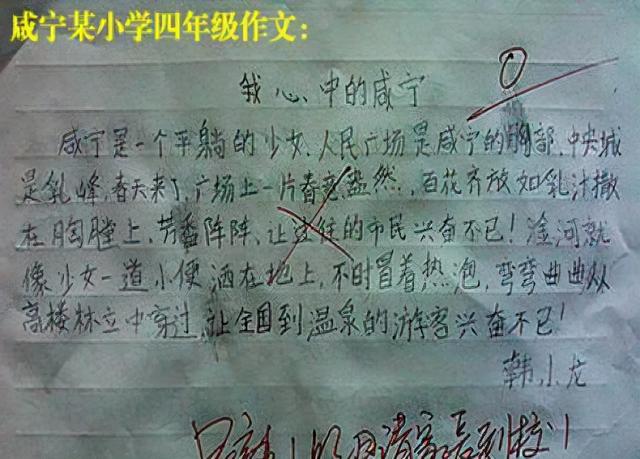 咸宁某小学四年级作文：
0
我心中的咸宁
咸宁是一个平躺的少女、人民广场是咸宁的胸部、中央城
是乳峰，春天来了，广场上一片春意盎然，百花齐放如乳汁撒
在胸膛上、芳香阵阵、让过往的市民兴奋不已！淦河就
像少女一道小便洒在地上，不时冒着热泡，弯弯曲曲从
高楼林立中穿过，让全国到温泉的游客兴奋不已！
韩小龙
请家长到校！